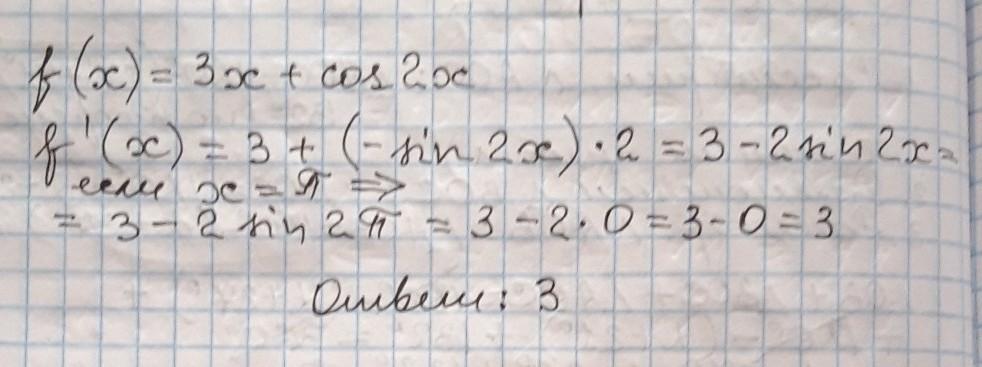 f(x) = 3x + cos 2x
f'(x) = 3 + (-sin 2x) · 2 = 3 - 2 sin 2x =
если x = π ⇒
= 3 - 2 sin 2π = 3 - 2 · 0 = 3 - 0 = 3
Ответ: 3